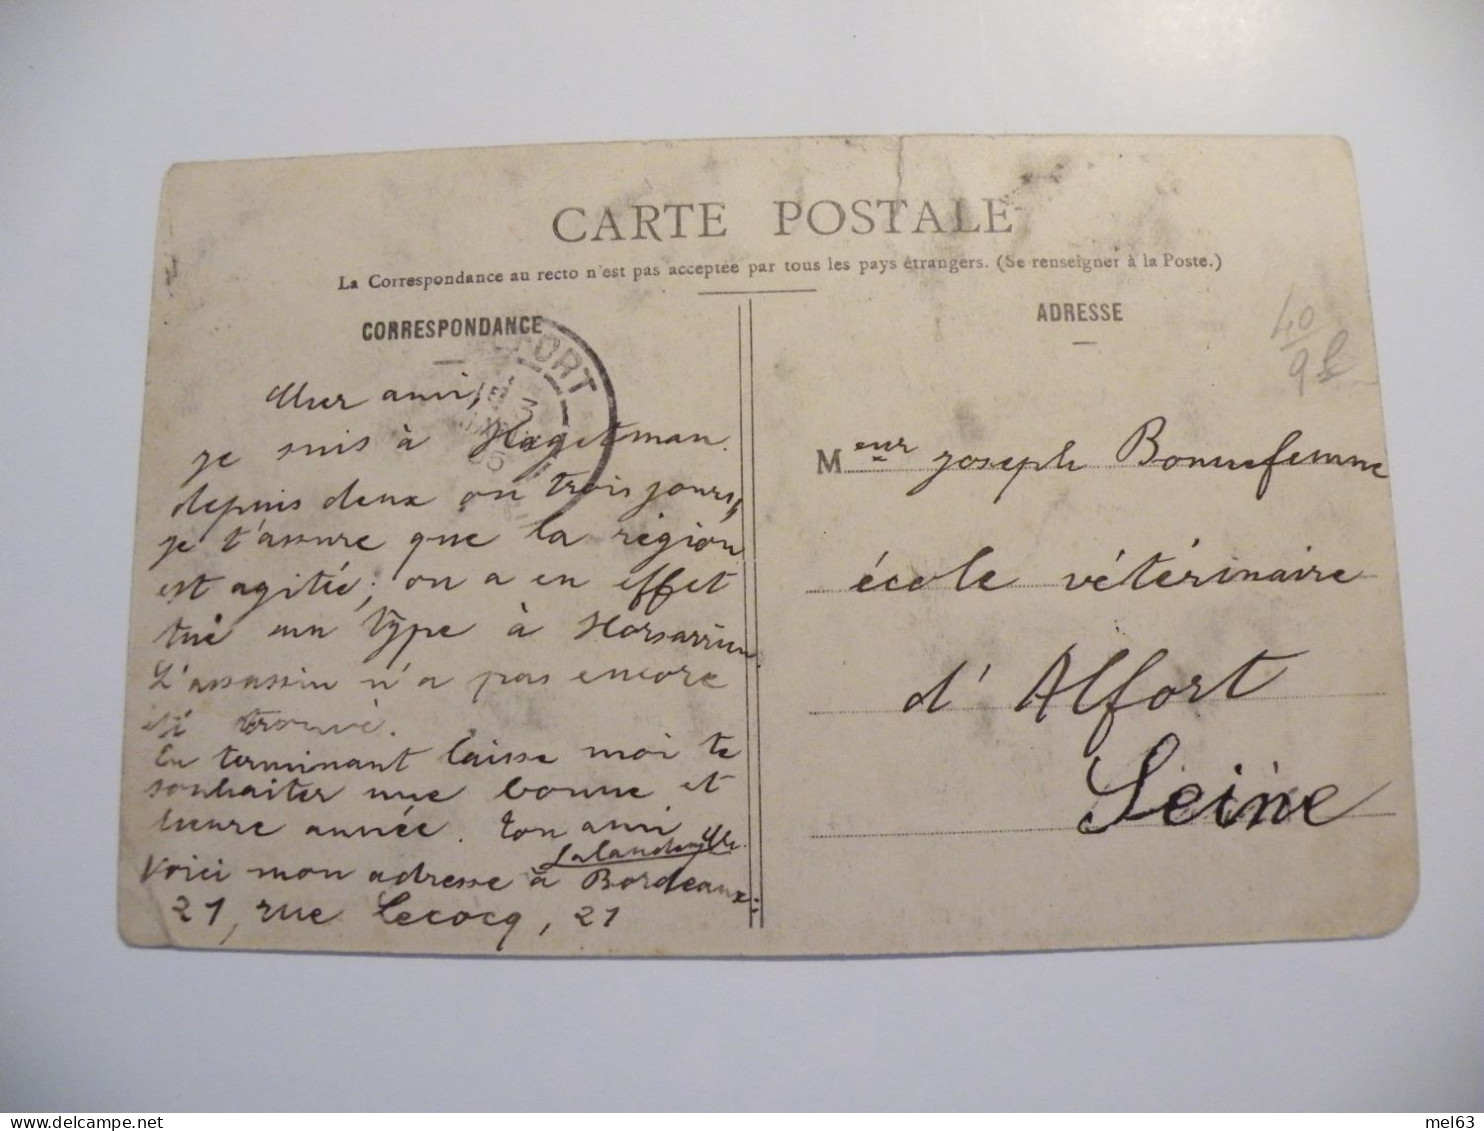 CARTE POSTALE
La Correspondance au recto n'est pas acceptée par tous les pays étrangers. (Se renseigner à la Poste.)
CORRESPONDANCE
FORT
3
05
Cher ami,
je suis à Hagetman
depuis deux ou trois jours,
je t'assure que la région
est agitée; on a en effet
tué un type à Horsarrieu.
L'assassin n'a pas encore
été trouvé.
En terminant laisse moi te
souhaiter une bonne et
heure année. ton ami
Voici mon adresse à Bordeaux:
21, rue Lecocq, 21
ADRESSE
40
9
Meur joseph Bonnefemme
école vétérinaire
d'Alfort
Seine
mel63